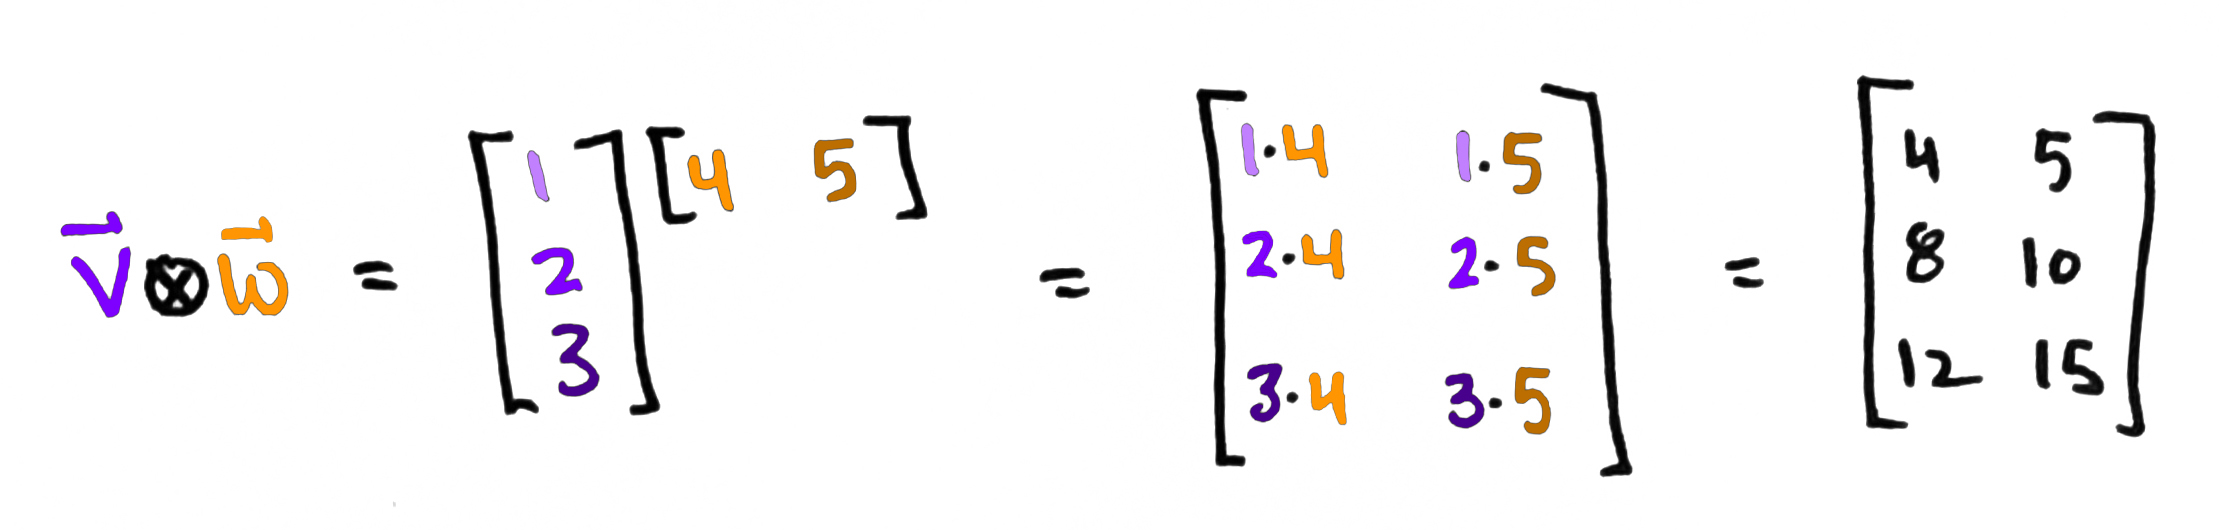 v⃗ ⊗ w⃗ = [1 2 3] [4 5] = [1·4 1·5 2·4 2·5 3·4 3·5] = [4 5 8 10 12 15]